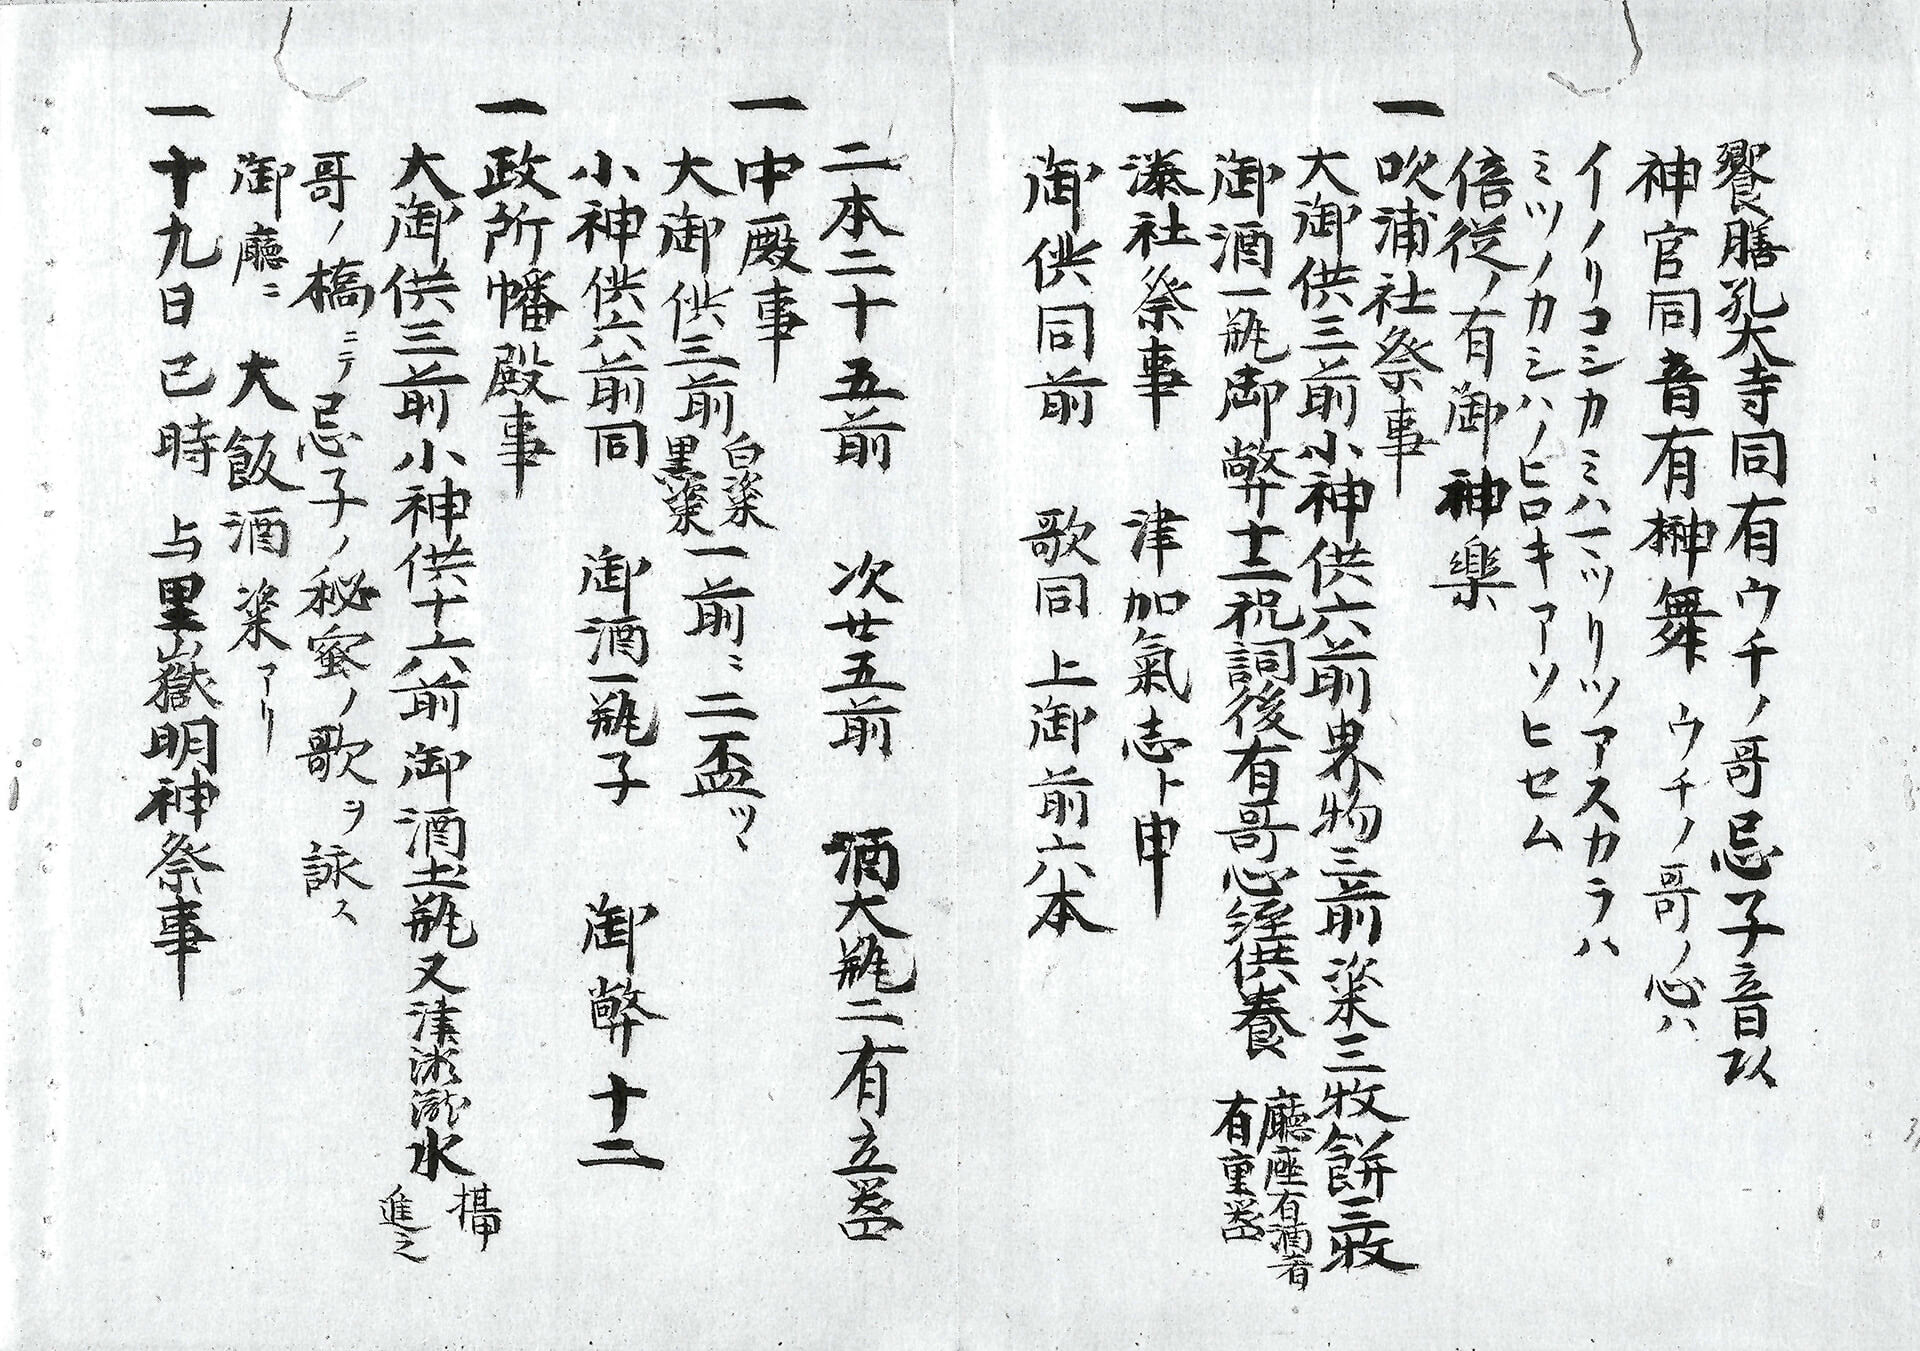 饗膳孔大寺同有ウチノ哥忌子音以
神官同音有榊舞ウチノ哥ノ心ハ
イノリコシカミハ一ツリツアスカラハ
ミツノカシハノヒロキアソヒセム
倍従ノ有御神樂
一吹浦社祭事
大御供三前小神供六前界物三前粢三牧餅三牧
御酒一瓶御弊十二祝詞後有哥心経供養
廳座有酒肴
有重盃
一湊社祭事 津加氣志ト申
御供同前 歌同 上御前六本
二本二十五前 次廿五前 酒大瓶二有立盃
一中殿事
大御供三前白粢黒粢一前ニ二盃ツヽ
小神供六前同 御酒一瓶子 御弊十二
一政所幡殿事
大御供三前小神供十六前御酒土瓶又津瀧水
進之
哥ノ橋ニテ忌子ノ秘蜜ノ歌ヲ詠ス
御廳ニ 大飯酒粢アリ
一十九日巳時 与里嶽明神祭事